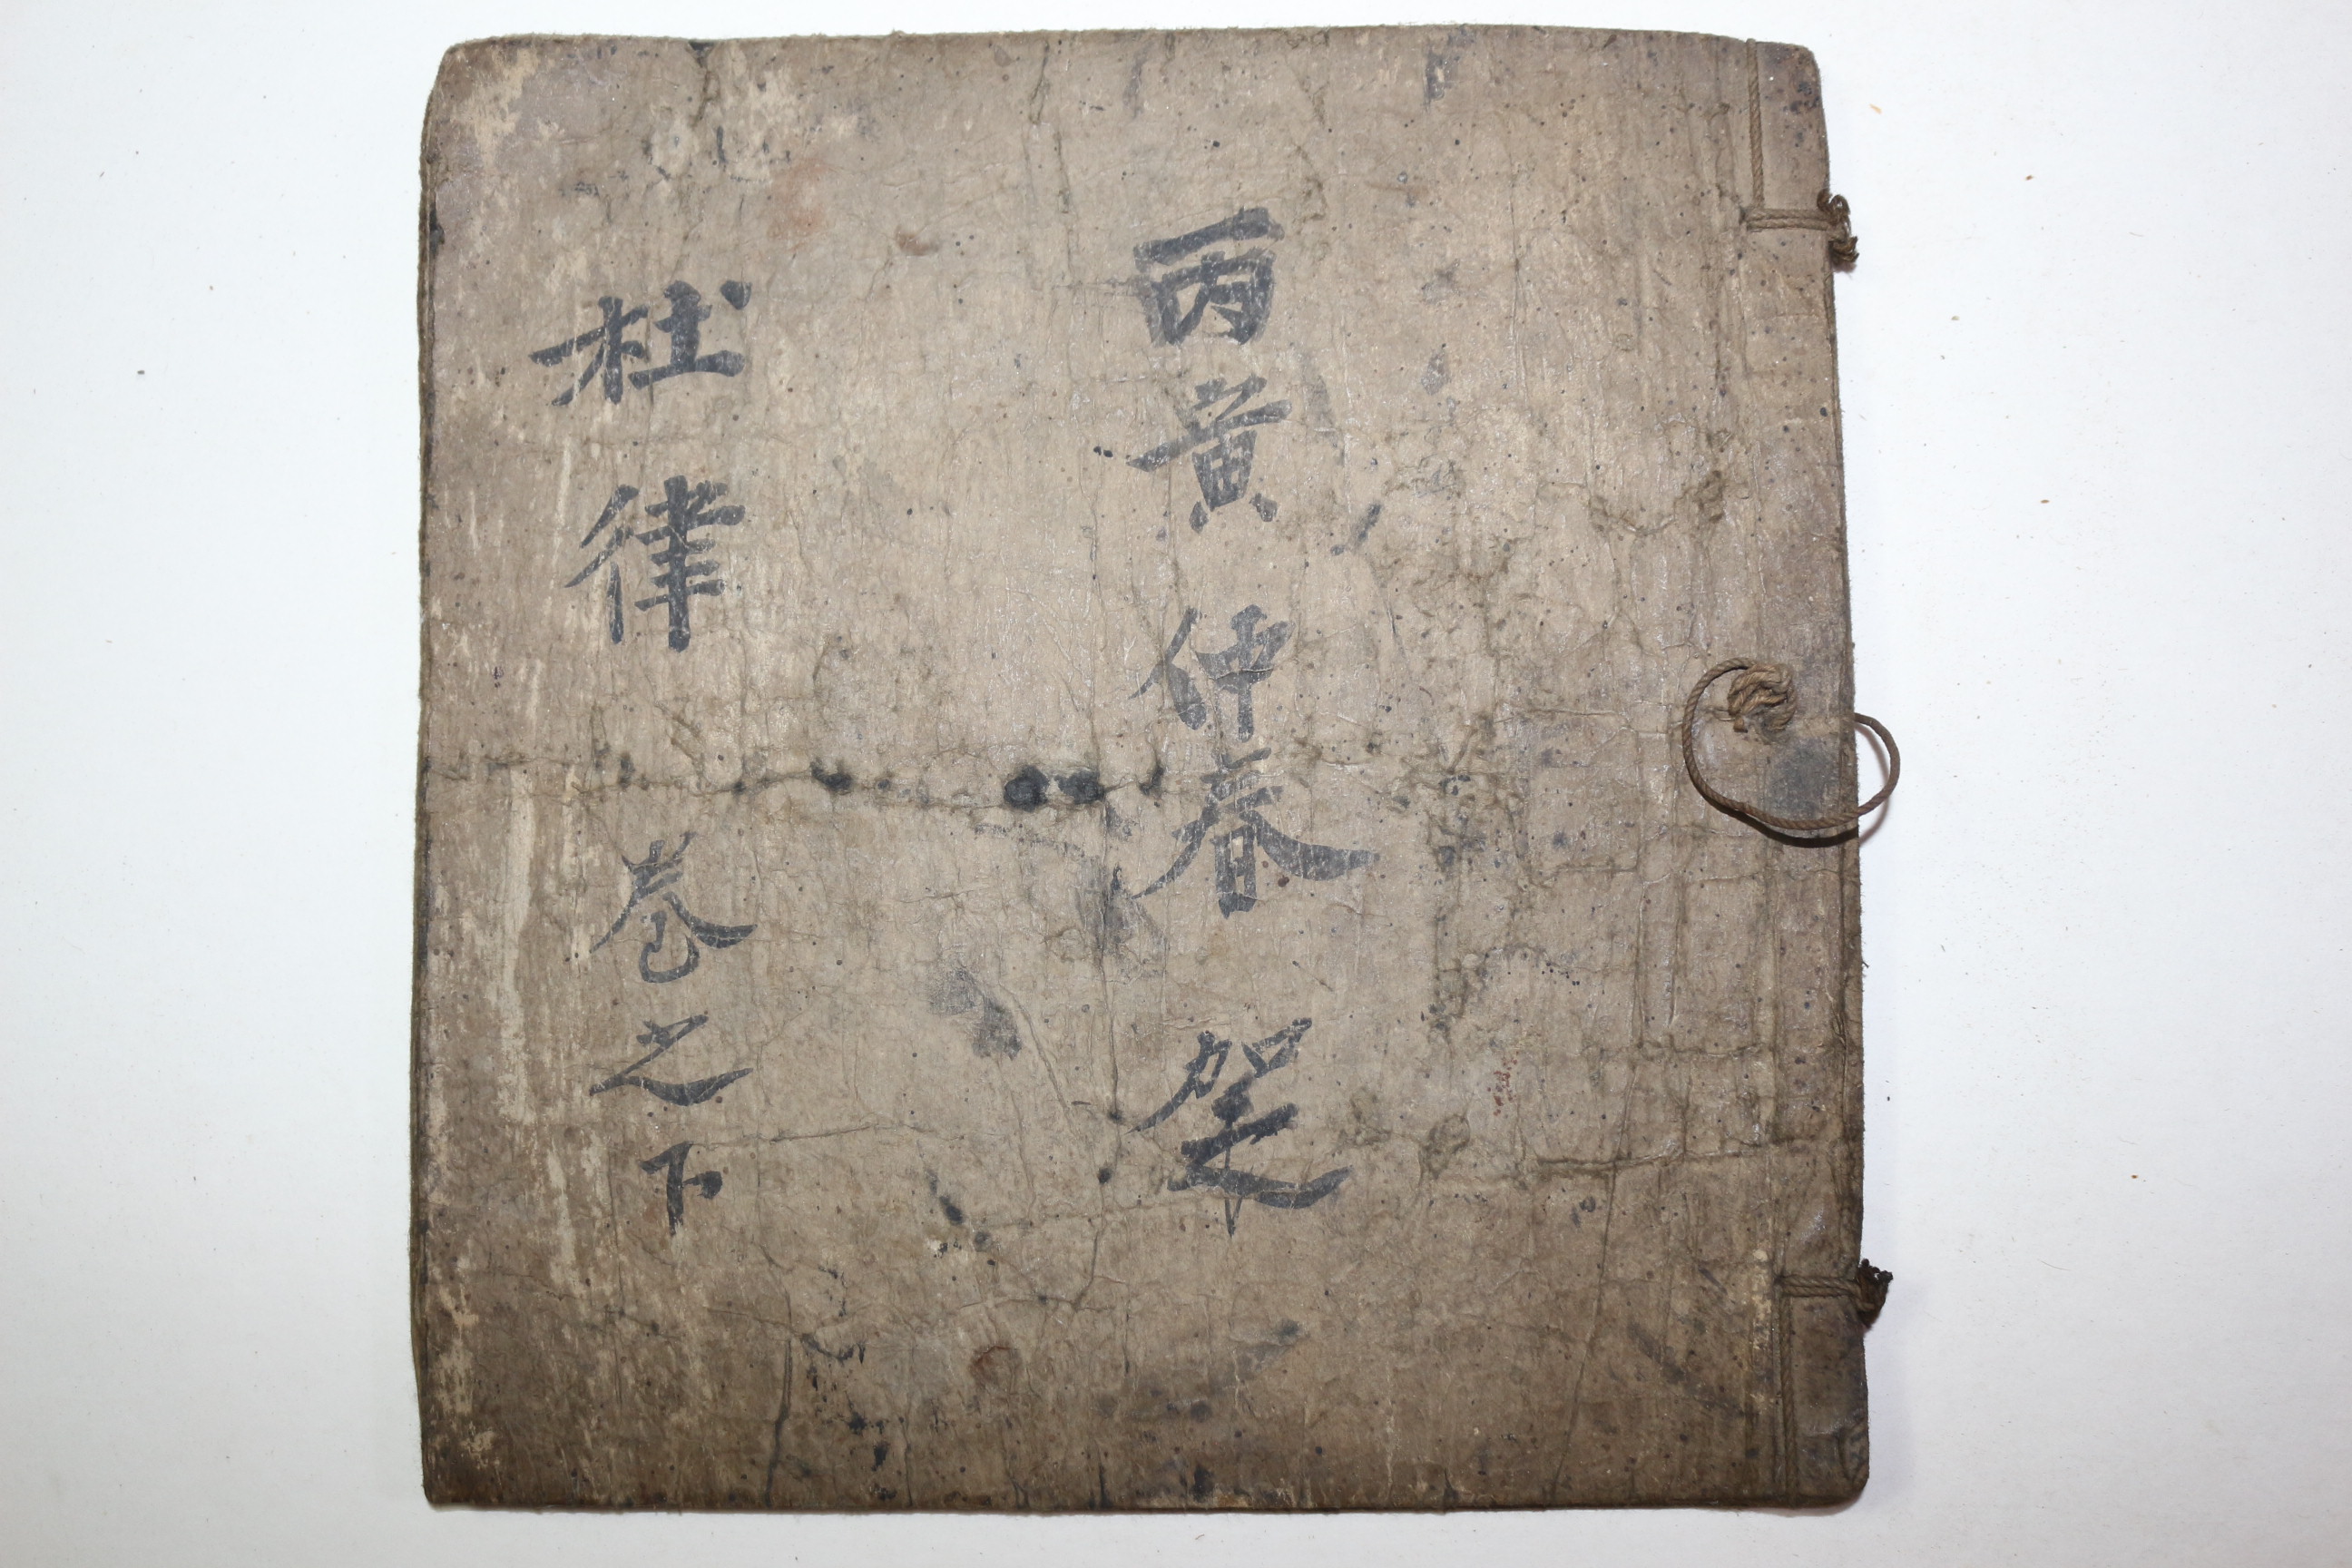 丙寅仲春
杜律 卷之下